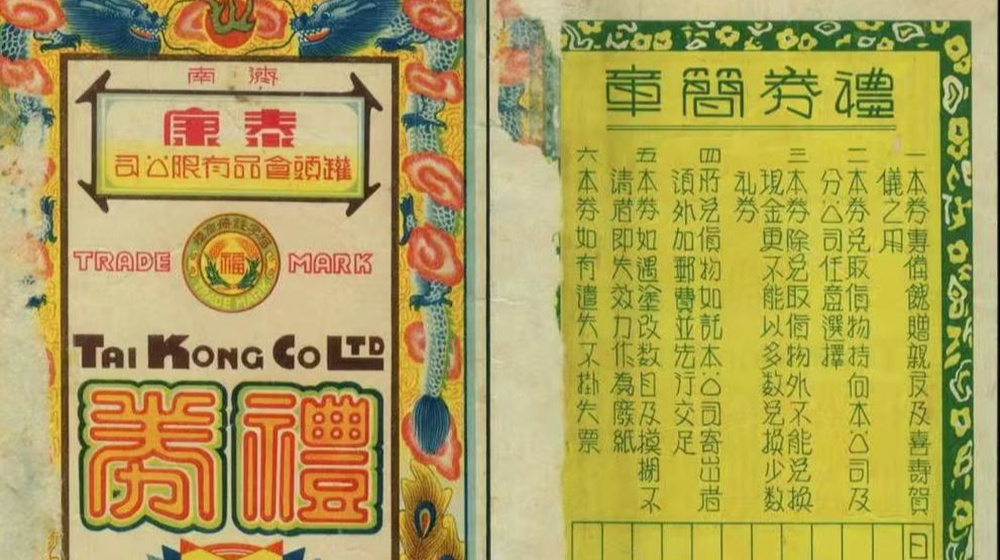 濟南
泰康
罐頭食品有限公司
TRADE MARK
福
TRADE MARK
TAI KONG CO LTD
禮券
禮券簡章
一本券專備餽贈親友及喜壽賀
儀之用
二本券兌取貨物持向本公司及
分公司任意選擇
三本券除兌取貨物外不能兌換
現金更不能以多數兌換少數
礼券
四將兌貨物如託本公司寄出者
須外加郵費並先行交足
五本券如遇塗改數目及摸糊不
清者即失效力作為廢紙
六本券如有遺失不掛失票
日